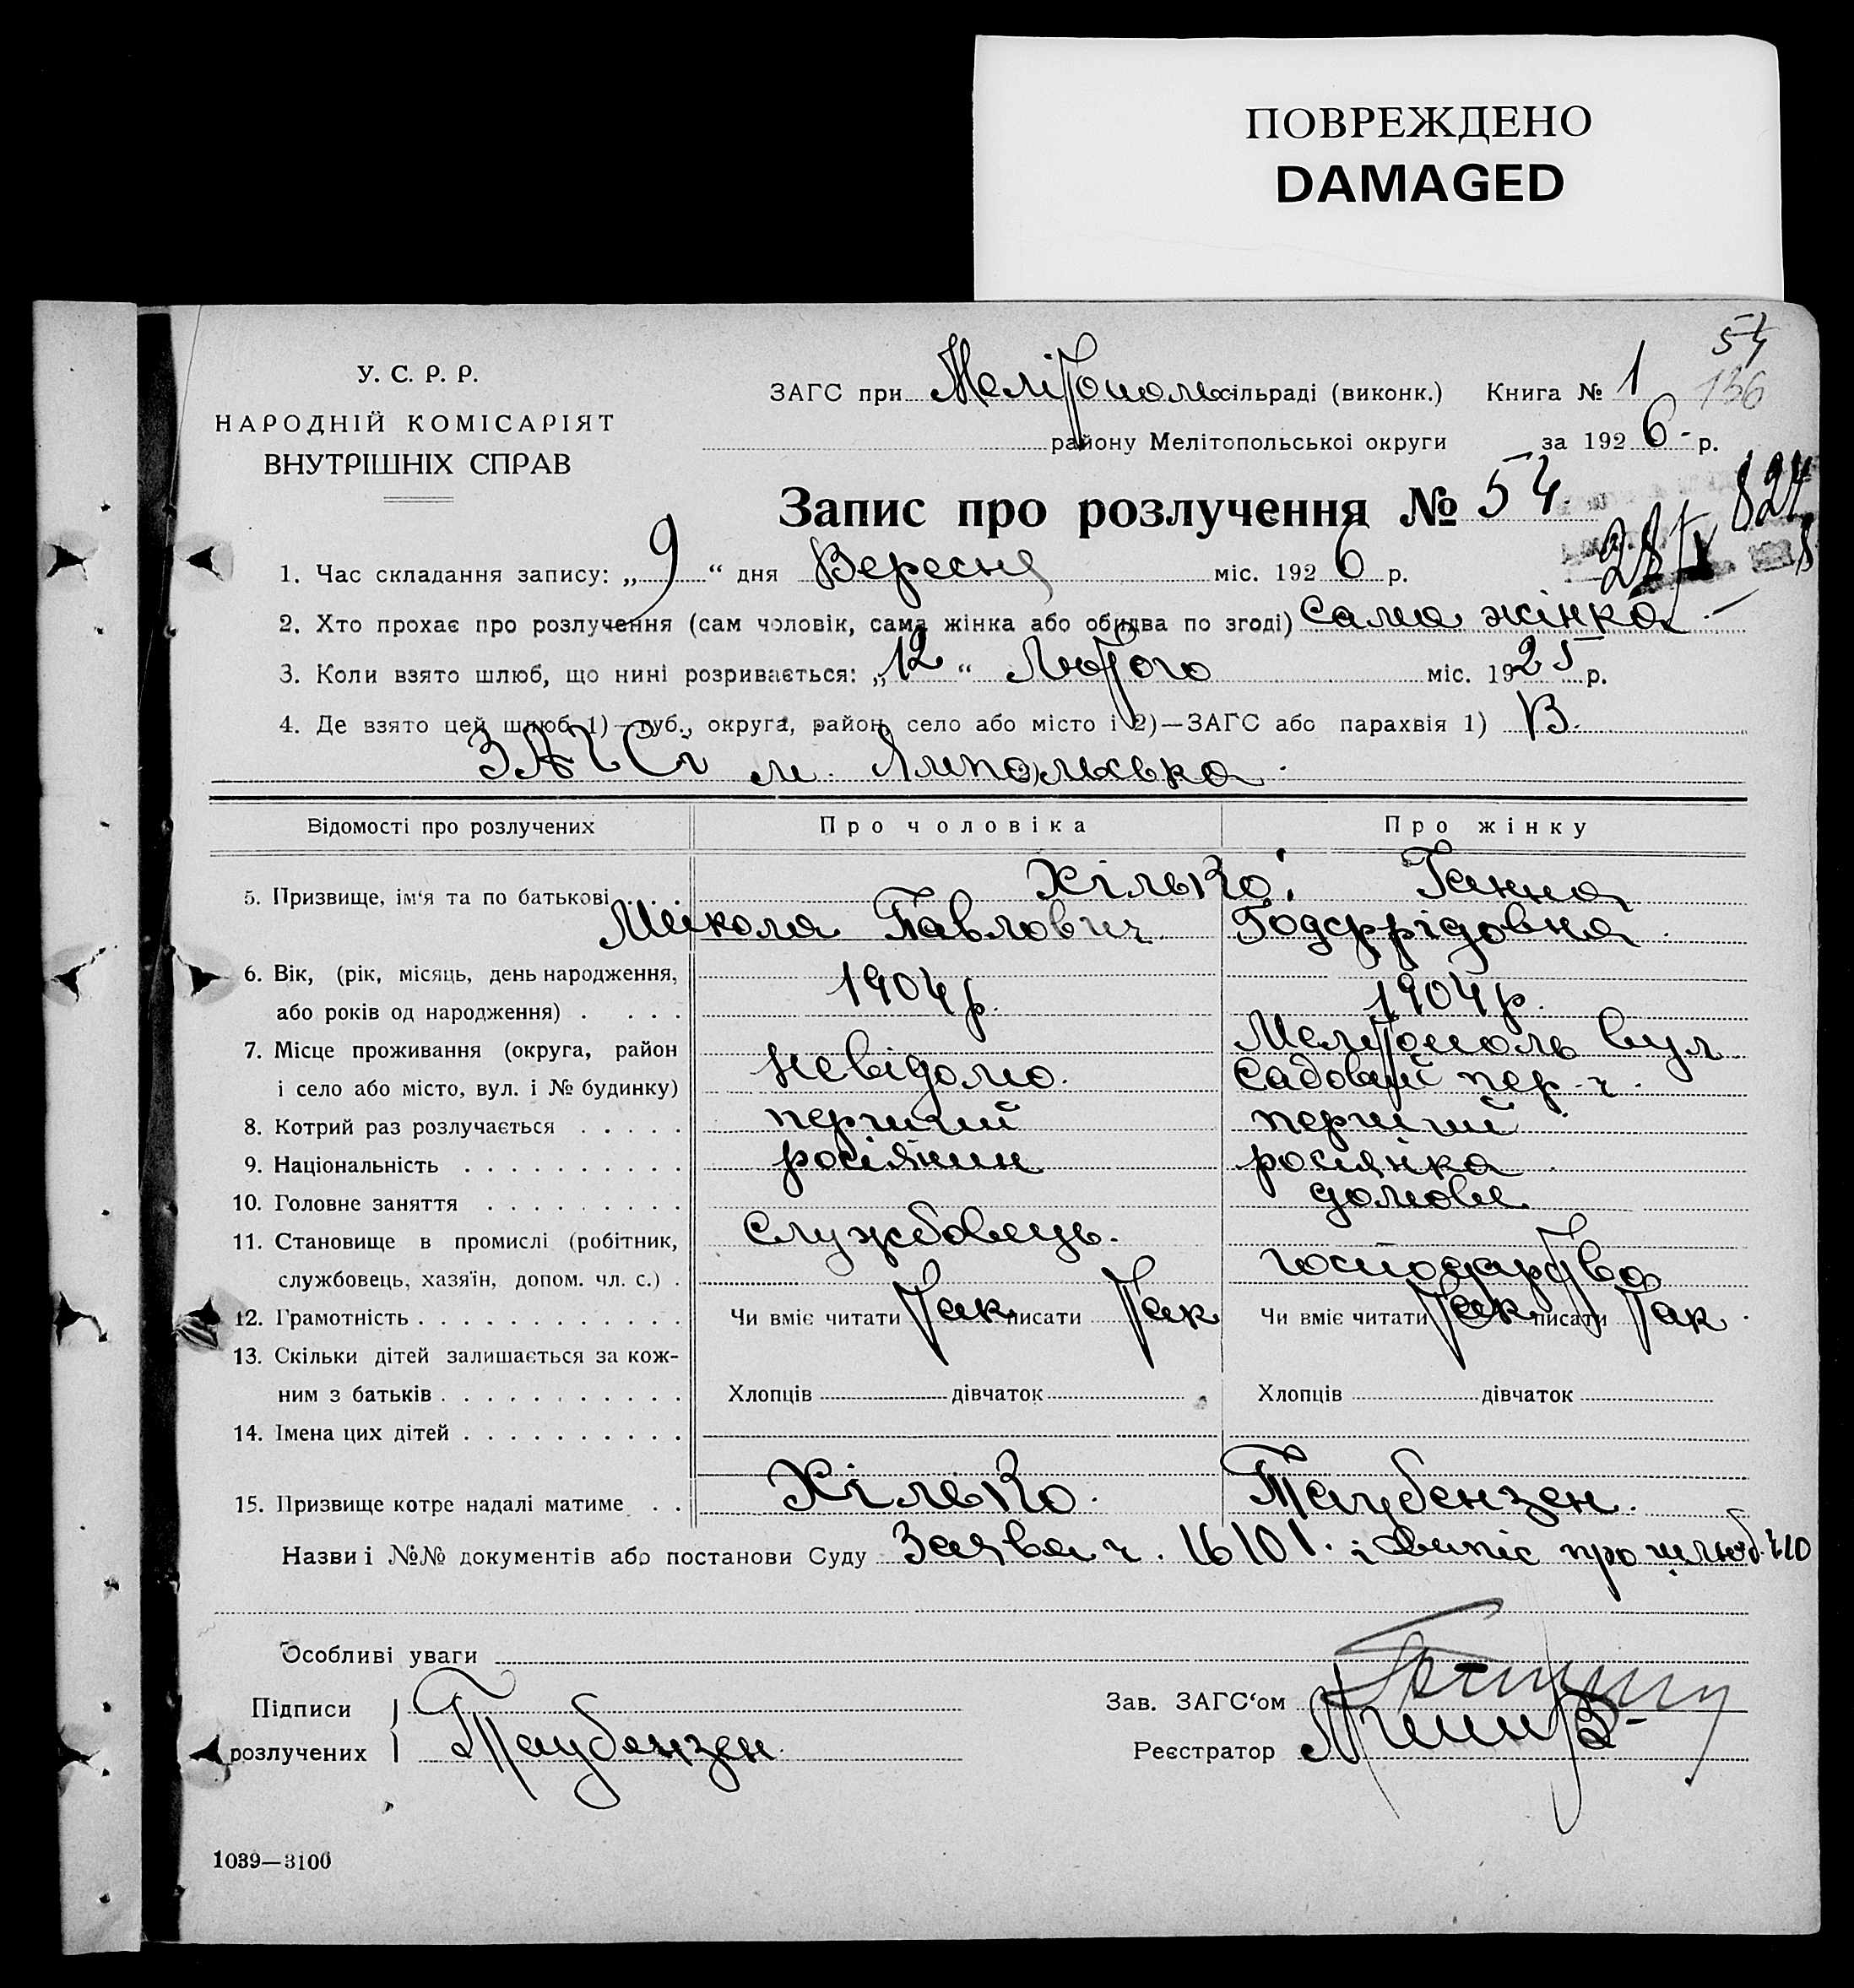 ПОВРЕЖДЕНО
DAMAGED
54
136
У. С. Р. Р.
НАРОДНІЙ КОМІСАРІЯТ
ВНУТРІШНІХ СПРАВ
ЗАГС при Мелітополь сільраді (виконк.) Книга № 1
району Мелітопольськоі округи за 1926 р.
Запис про розлучення № 54
824
28/IX
1. Час складання запису: „9“ дня Вересня міс. 1926 р.
2. Хто прохає про розлучення (сам чоловік, сама жінка або обидва по згоді) сама жінка
3. Коли взято шлюб, що нині розривається: „12“ Лютого міс. 1925 р.
4. Де взято цей шлюб 1)—губ., округа, район, село або місто і 2)—ЗАГС або парахвія 1) В
ЗАГСі м.
Відомості про розлучених Про чоловіка Про жінку
5. Призвище, ім‘я та по батькові Хілько: Ганна
Микола Павлович Годфрідовна
6. Вік, (рік, місяць, день народження,
або років од народження) 1904 р. 1904 р.
7. Місце проживання (округа, район Мелітополь вул
і село або місто, вул. і № будинку) невідомо. Садовий пер. ч.
8. Котрий раз розлучається перший перший
9. Національність росіянин росіянка
10. Головне заняття домове
11. Становище в промислі (робітник, Службовець.
службовець, хазяїн, допом. чл. с.) господарство
12. Грамотність Чи вміє читати Так писати Так Чи вміє читати Так писати Так
13. Скільки дітей залишається за кож-
ним з батьків Хлопців дівчаток Хлопців дівчаток
14. Імена цих дітей
15. Призвище котре надалі матиме Хілько. Таубензен.
Назви і №№ документів або постанови Суду Заява ч. 16101. і випіс про шлюб ч 10
Особливі уваги
Підписи
розлучених Таубензен.
Зав. ЗАГС‘ом
Реєстратор
1039—3100